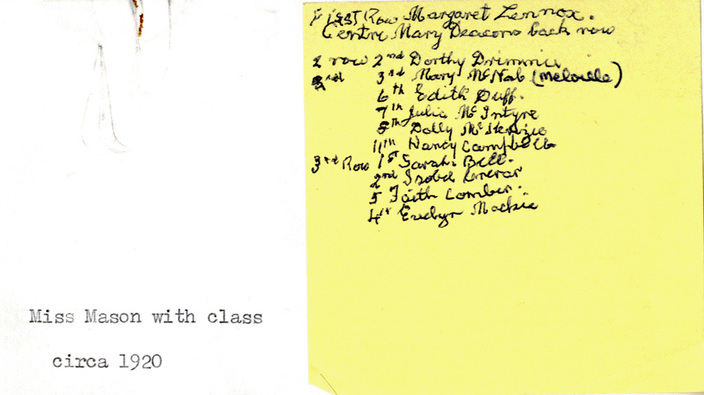 First Row Margaret Lennox.
Centre Mary Deacons back row
2 row 2nd Dorthy Drimmie
3rd Mary McNab (Melville)
6th Edith Duff.
7th Julia McIntyre
8th Dolly
11th Nancy Campbell
3rd Row 1st Sarah Bell.
2nd Isobel
5 Faith
4th Evelyn Mackie
Miss Mason with class
circa 1920